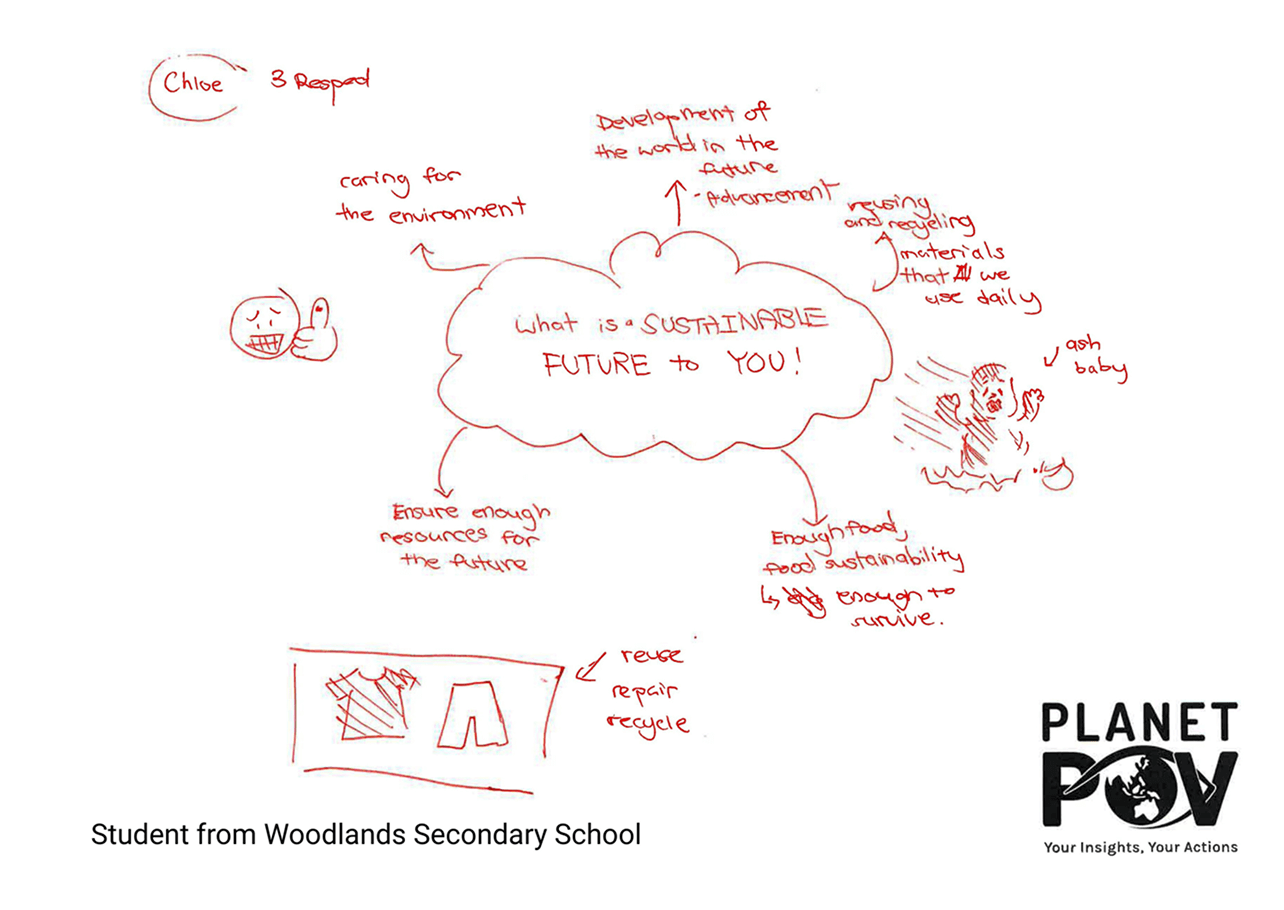 Chloe 3 Respect
Development of
the world in the
future
-Advancement
caring for
the environment
reusing
and recycling
materials
that we
use daily
What is a SUSTAINABLE
FUTURE to YOU!
ash
baby
Ensure enough
resources for
the future
Enough food,
food sustainability
↳ enough to
survive.
reuse
repair
recycle
PLANET
POV
Your Insights, Your Actions
Student from Woodlands Secondary School